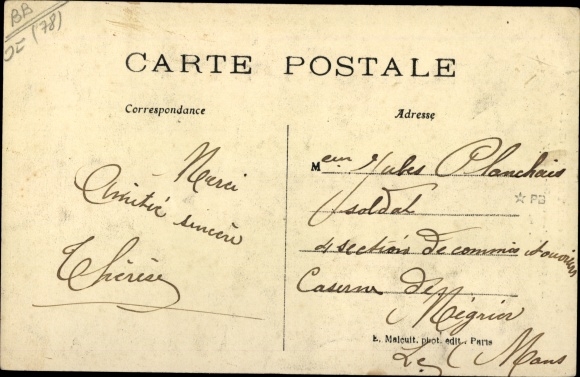 BB
(78)
CARTE POSTALE
Correspondance
Adresse
Merci
Amitié sincère
Thérèse
Meur Jules Planchais
soldat
☆ PB
4 section de commis et ouvriers
Caserne de
Négrier
E. Malcuit, phot. édit., Paris
Le Mans